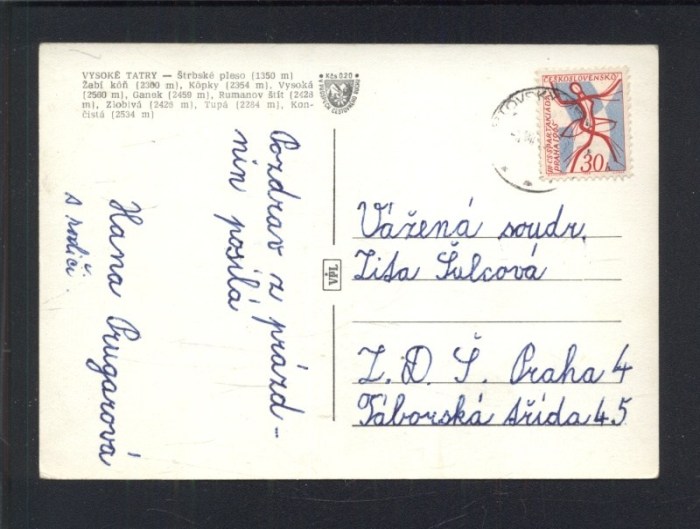 VYSOKÉ TATRY — Štrbské pleso (1350 m)
Žabí kôň (2380 m), Kôpky (2354 m), Vysoká
(2560 m), Ganek (2459 m), Rumanov štít (2428
m), Zlobivá (2426 m), Tupá (2284 m), Kon-
čistá (2534 m)
Kčs 0,20
ČESKOSLOVENSKO
PRAHA 1965
30 h
Pozdrav z prázd-
nin posílá
Hana Prugarová
s rodiči.
VPL
Vážená soudr.
Zita Šulcová
Z. D. Š. Praha 4
Táborská třída 45